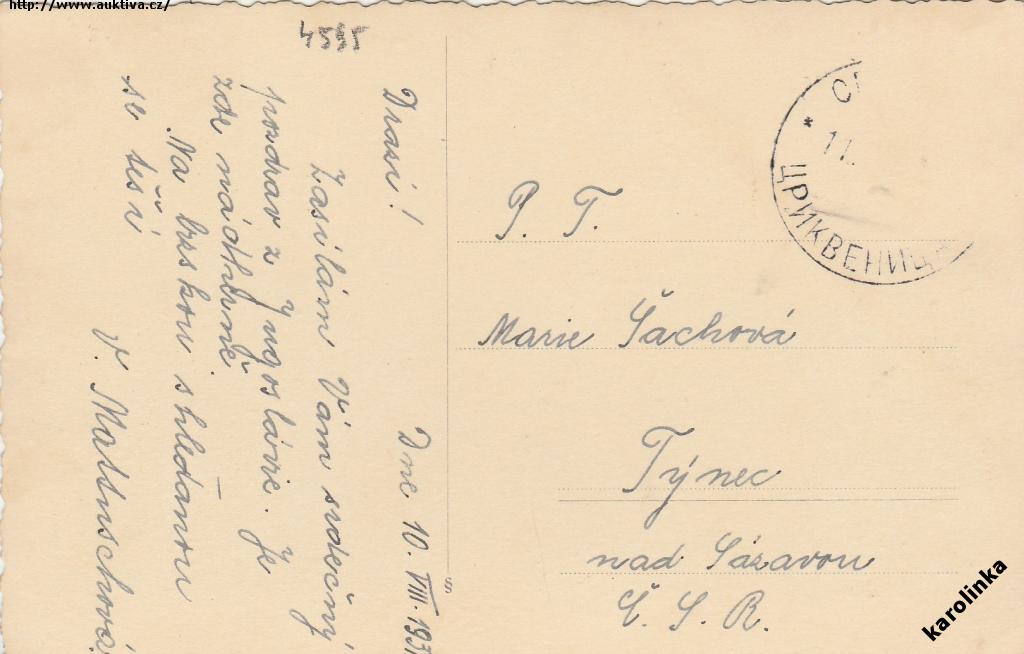 http://www.auktiva.cz/
4585
Drasí!
Dne 10. VIII. 193
Zasílám Vám srdečný
pozdrav z Jugoslávie. Je
zde nádherně.
Na brskou shledanou
se těší
V. Matuschová.
P. T.
Marie Šachová
Týnec
nad Sázavou
Č. S. R.
11.
ЦРИКВЕНИЦА
S
karolinka